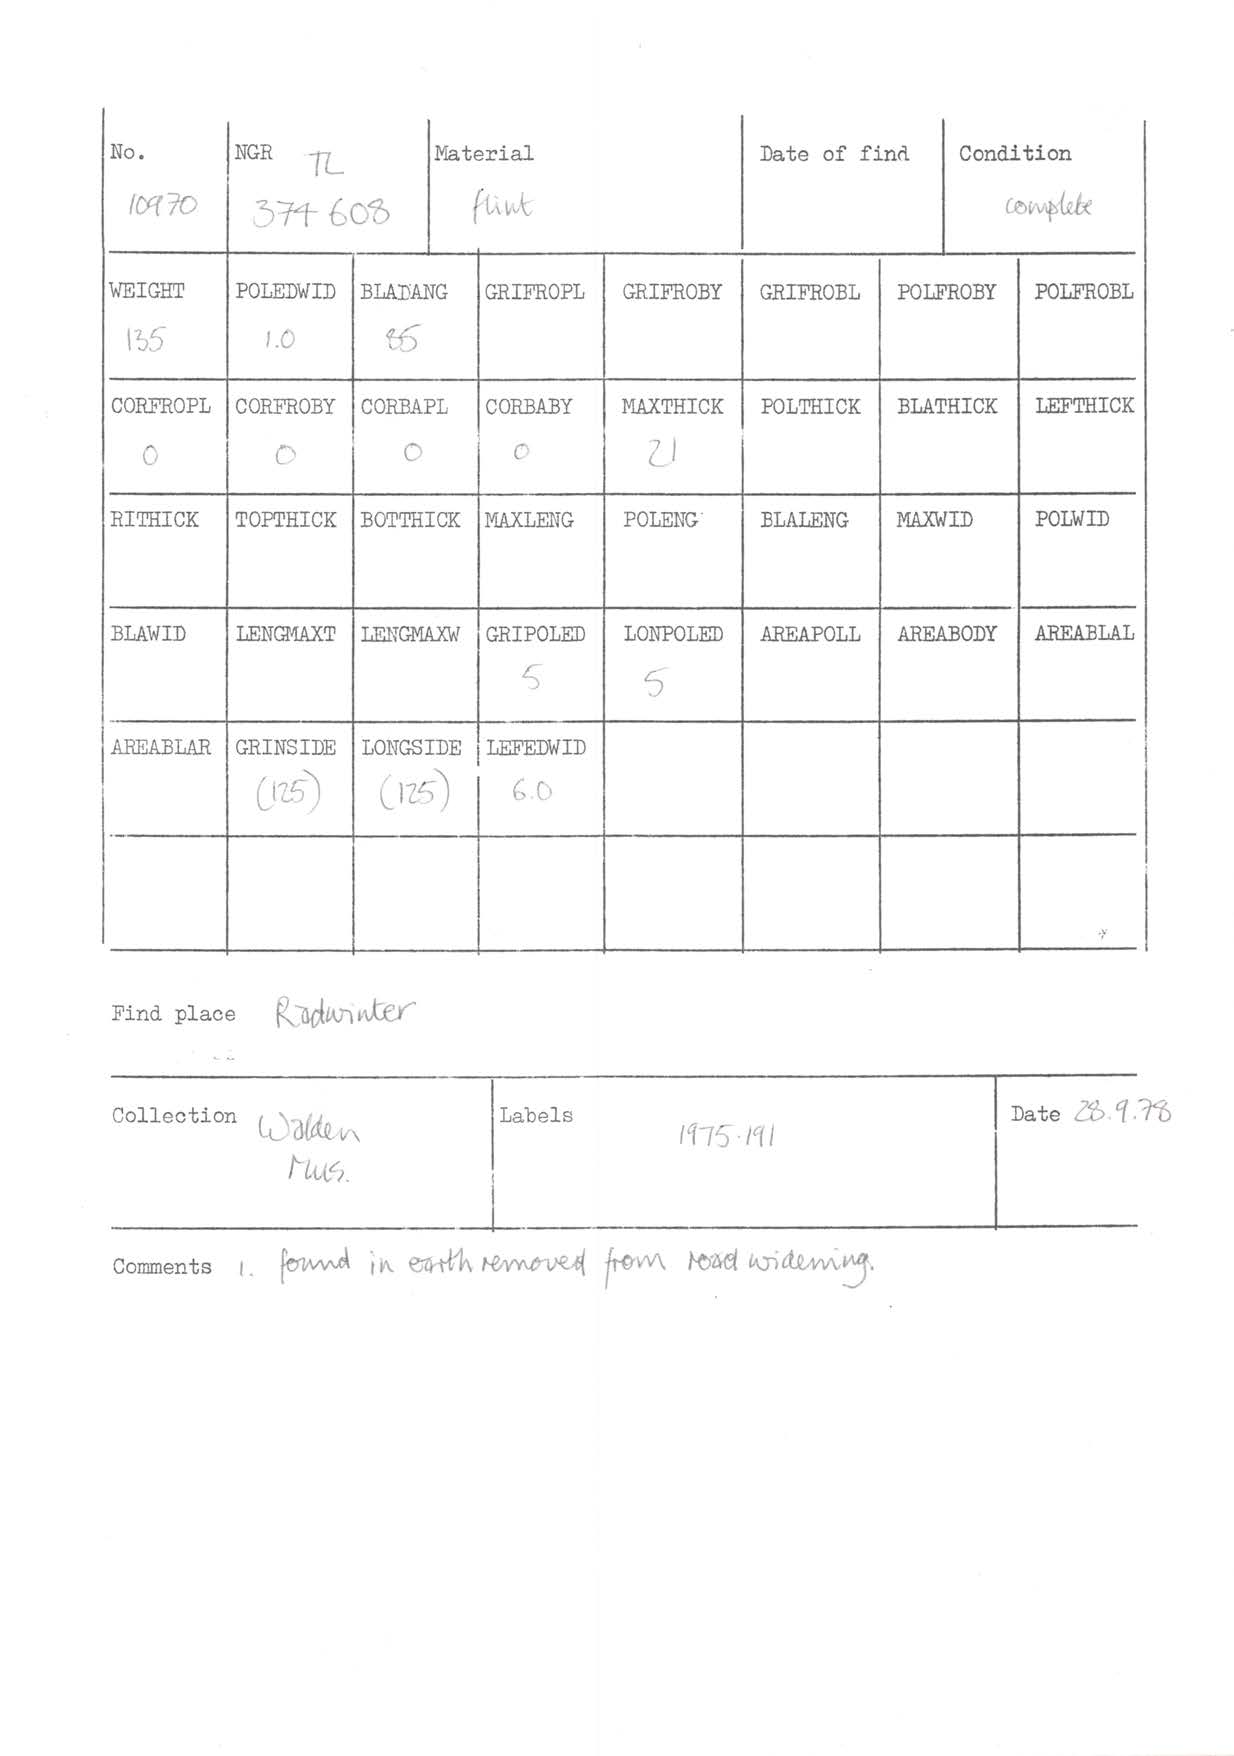 No. NGR TL Material Date of find Condition
10970 374 608 flint complete
WEIGHT POLEDWID BLADANG GRIFROPL GRIFROBY GRIFROBL POLFROBY POLFROBL
135 1.0 85
CORFROPL CORFROBY CORBAPL CORBABY MAXTHICK POLTHICK BLATHICK LEFTHICK
0 0 0 0 21
RITHICK TOPTHICK BOTTHICK MAXLENG POLENG BLALENG MAXWID POLWID
BLAWID LENGMAXT LENGMAXW GRIPOLED LONPOLED AREAPOLL AREABODY AREABLAL
5 5
AREABLAR GRINSIDE LONGSIDE LEFEDWID
(125) (125) 6.0
Find place Radwinter
Collection Walden Labels 1975.191 Date 28.9.78
Mus.
Comments 1. found in earth removed from road widening.